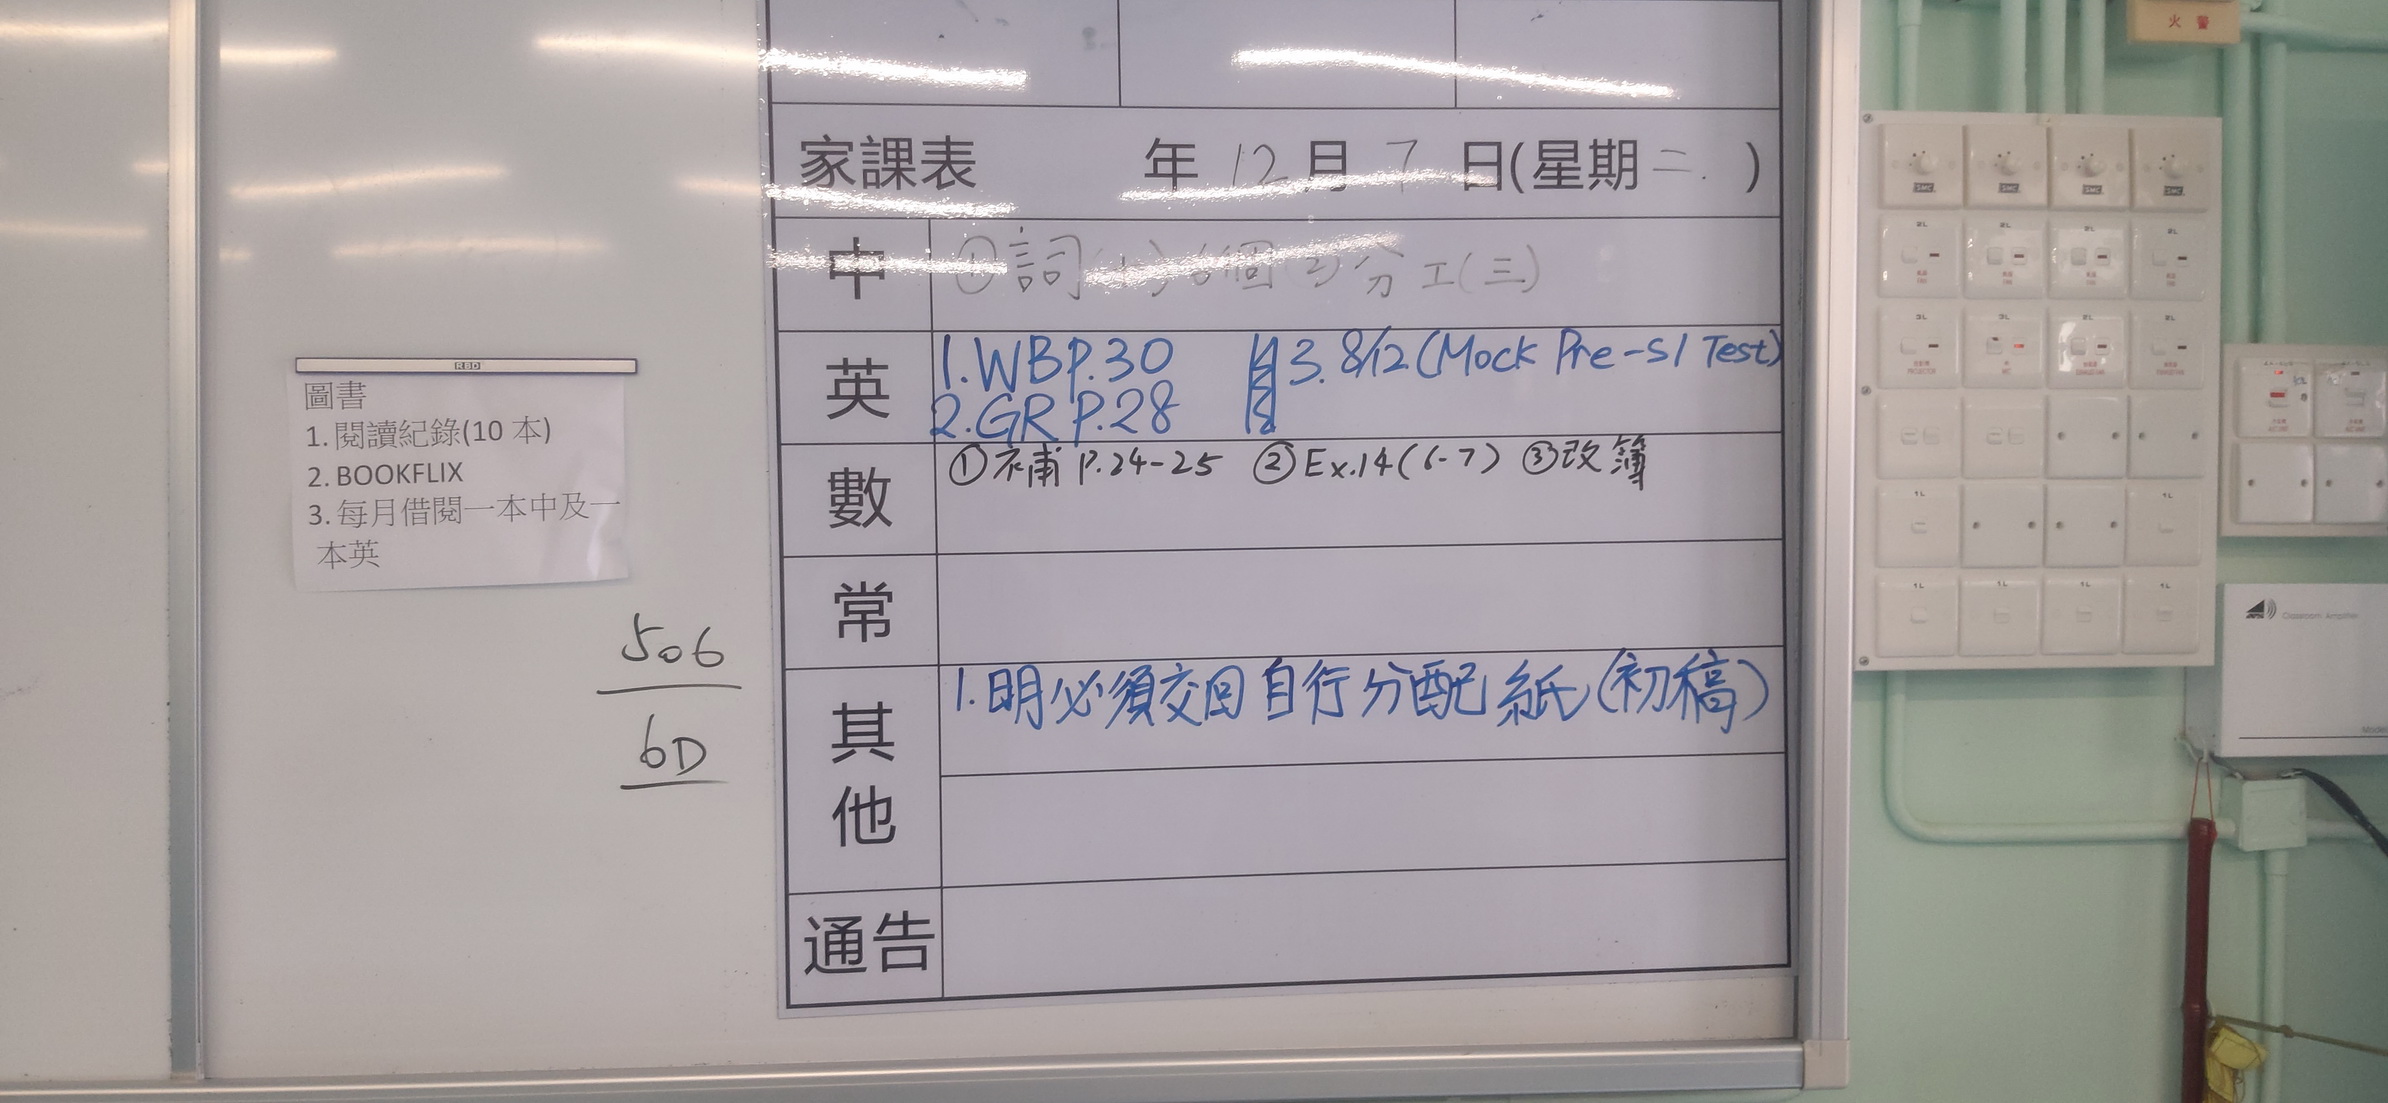 火警
家課表 年 12 月 7 日(星期 二 )
中 ①詞(十) 6個 ②分工(三)
英 1. WB P.30 3. 8/12 (Mock Pre-S1 Test)
2. GR P.28
數 ①補 P.24-25 ②Ex.14(6-7) ③改簿
常
其他 1. 明必須交回自行分配紙(初稿)
通告
RBD
圖書
1. 閱讀紀錄(10 本)
2. BOOKFLIX
3. 每月借閱一本中及一
本英
506
6D
Classroom Amplifier